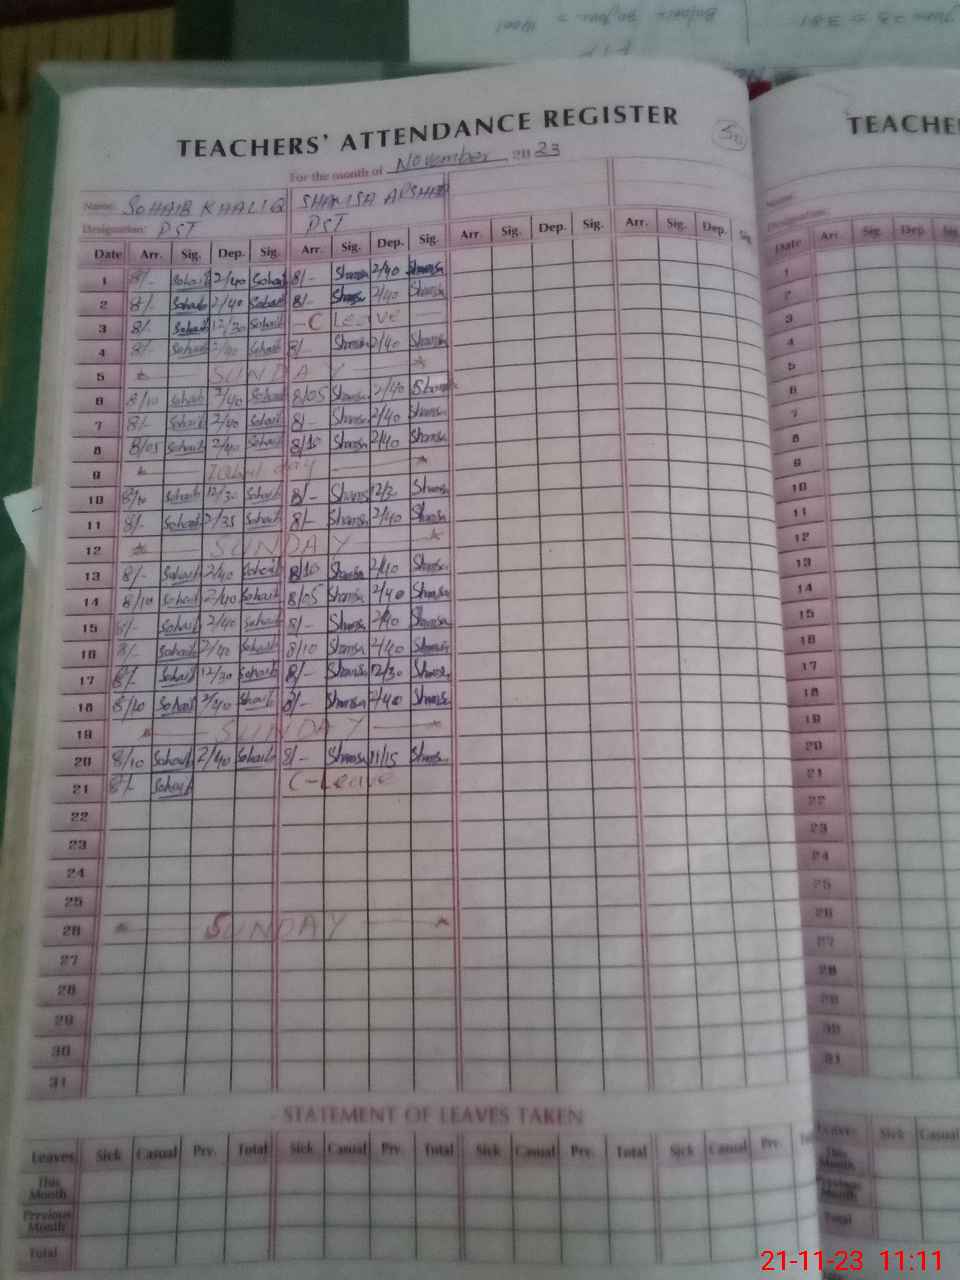 TEACHERS' ATTENDANCE REGISTER
For the month of November 2023
Name: SOHAIB KHALIQ SHAMSA ARSHAD
Designation: PST PST
Date Arr. Sig. Dep. Sig. Arr. Sig. Dep. Sig. Arr. Sig. Dep. Sig. Arr. Sig. Dep. Sig
1 8/- Sohaib 2/40 Sohaib 8/- Shamsa 2/40 Shamsa
2 8/- Sohaib 2/40 Sohaib 8/- Shamsa 2/40 Shamsa
3 8/- Sohaib 12/30 Sohaib - C Leave -
4 8/- Sohaib 2/40 Sohaib 8/- Shamsa 2/40 Shamsa
5 SUNDAY
6 8/10 Sohaib 2/40 Sohaib 8/05 Shamsa 2/40 Shamsa
7 8/- Sohaib 2/40 Sohaib 8/- Shamsa 2/40 Shamsa
8 8/05 Sohaib 2/40 Sohaib 8/10 Shamsa 2/40 Shamsa
9 Iqbal day
10 8/10 Sohaib 12/30 Sohaib 8/- Shamsa Shamsa
11 8/- Sohaib 2/35 Sohaib 8/- Shamsa 2/40 Shamsa
12 SUNDAY
13 8/- Sohaib 2/40 Sohaib 8/10 Shamsa 2/40 Shamsa
14 8/10 Sohaib 2/40 Sohaib 8/05 Shamsa 2/40 Shamsa
15 8/- Sohaib 2/40 Sohaib 8/- Shamsa 2/40 Shamsa
16 8/- Sohaib 2/40 Sohaib 8/10 Shamsa 2/40 Shamsa
17 8/- Sohaib 12/30 Sohaib 8/- Shamsa 12/30 Shamsa
18 8/10 Sohaib 2/40 Sohaib 8/- Shamsa 2/40 Shamsa
19 SUNDAY
20 8/10 Sohaib 2/40 Sohaib 8/- Shamsa 11/15 Shamsa
21 8/- Sohaib C-Leave
22
23
24
25
26 SUNDAY
27
28
29
30
31
STATEMENT OF LEAVES TAKEN
Leaves Sick Casual Prv. Total Sick Casual Prv. Total Sick Casual Prv. Total Sick Casual Prv.
This Month
Previous Month
Total
TEACHE
Name:
Designation:
Date Arr. Sig. Dep. Sig
1
2
3
4
5
6
7
8
9
10
11
12
13
14
15
16
17
18
19
20
21
22
23
24
25
26
27
28
29
30
31
Leaves Sick Casual
This Month
Previous Month
Total
21-11-23 11:11